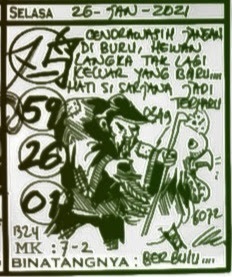 SELASA 26-JAN-2021
15 CENDRAWASIH JANGAN
DI BURU, HEWAN
LANGKA TAK LAGI
KELUAR YANG BARU....
HATI SI SARJANA JADI
TERHARU
59
26
01
6072
1324
MK : 7-2
BINATANGNYA : BERBULU....